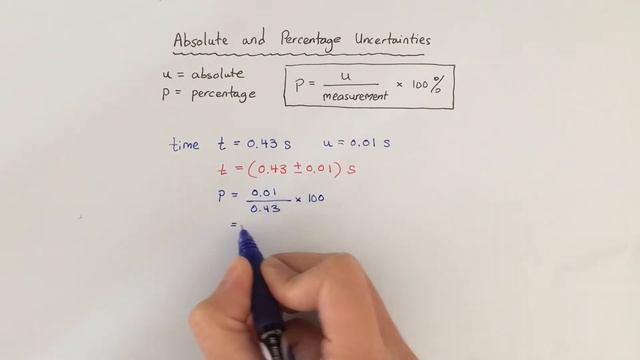 Absolute and Percentage Uncertainties
u = absolute
p = percentage
P = u / measurement × 100%
time t = 0.43 s u = 0.01 s
t = (0.43 ± 0.01) s
P = 0.01 / 0.43 × 100
=